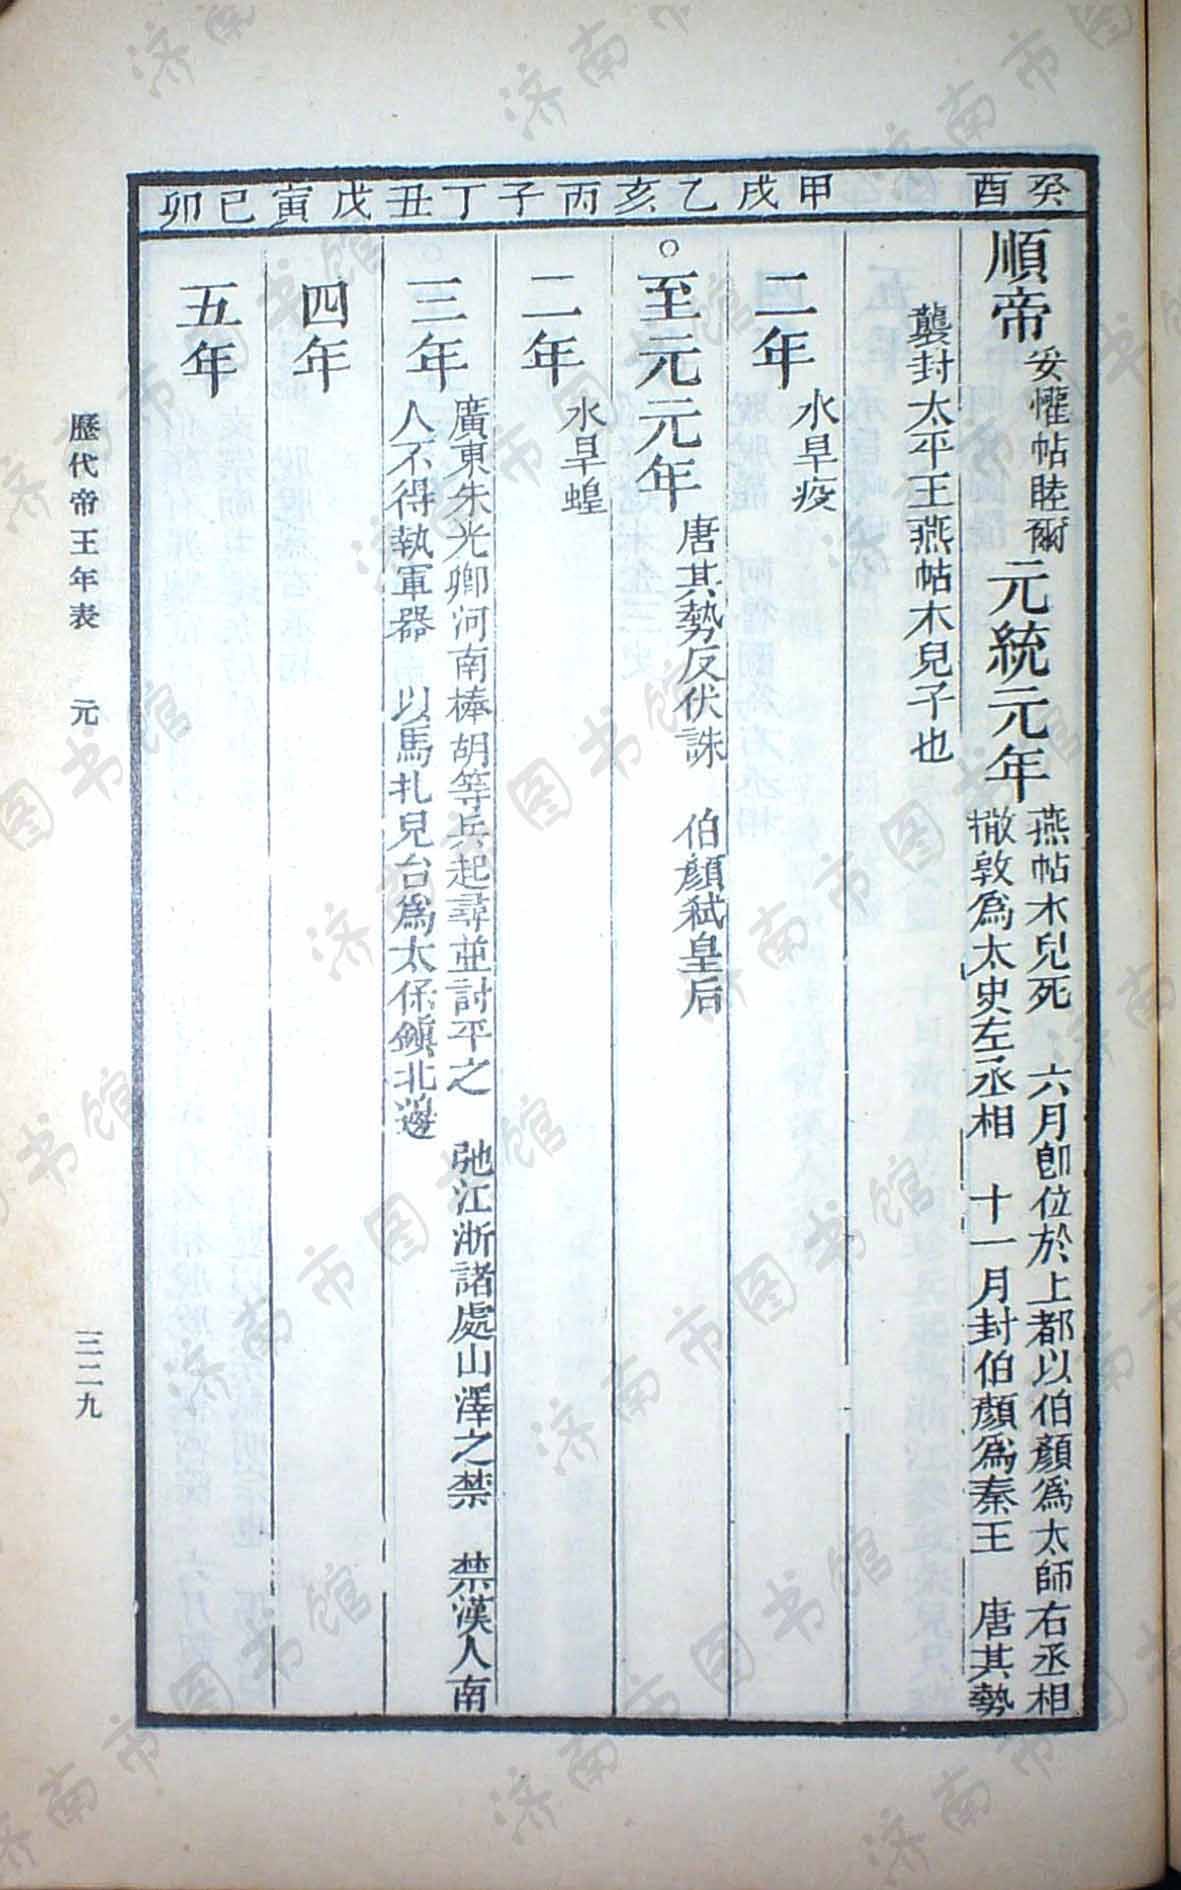 癸酉
甲戌
乙亥
丙子
丁丑
戊寅
己卯
順帝
妥懽帖睦爾
元統元年
燕帖木兒死　六月卽位於上都以伯顏爲太師右丞相
撒敦爲太史左丞相　十一月封伯顏爲秦王　唐其勢
襲封太平王燕帖木兒子也
二年
水旱疫
○至元元年
唐其勢反伏誅　伯顏弒皇后
二年
水旱蝗
三年
廣東朱光卿河南棒胡等兵起尋並討平之　弛江浙諸處山澤之禁　禁漢人南
人不得執軍器　以馬扎兒台爲太保鎭北邊
四年
五年
歷代帝王年表　元
三二九
济南市图书馆